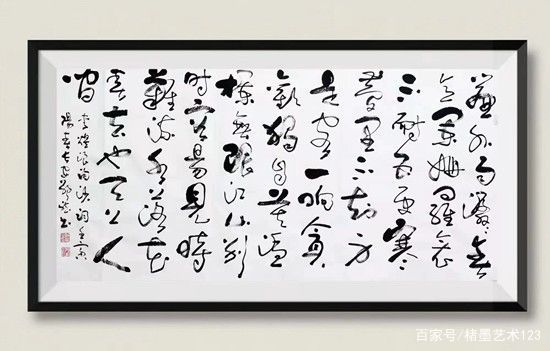 簾外雨潺潺春
意闌珊羅衾
不耐五更寒
夢里不知身
是客一晌貪
歡獨自莫憑
欄無限江山別
時容易見時
難流水落花
春去也天上人
間
李煜浪淘沙詞
百家号/楮墨艺术123